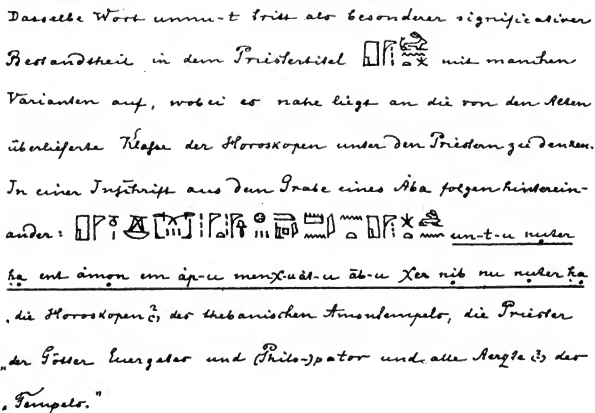 Dasselbe Wort unnu-t tritt als besonderer significativer
Bestandtheil in dem Priestertitel mit manchen
Varianten auf, wobei es nahe liegt an die von den Alten
überlieferte Klasse der Horoskopen unter den Priestern zu denken.
In einer Inschrift aus dem Grabe eines Aba folgen hinterein-
ander: un-t-u nuter
ḥa ent amon em áp-u menχ-uát-u āb-u χer nib nu nuter ḥa
„die Horoskopen (?) des thebanischen Amontempels, die Priester
„der Götter Euergetes und (Philo-)pator und alle Aerzte (?) des
„Tempels."